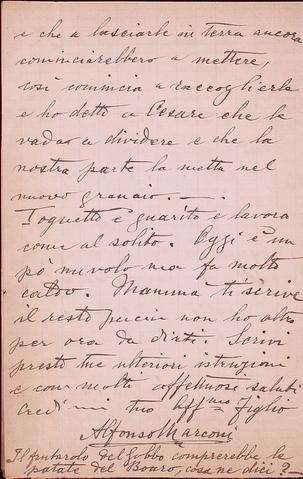 e che a lasciarle in terra ancora
comincierebbero a mettere,
così comincia a raccoglierle
e ho detto a Cesare che le
vada a dividere e che la
nostra parte la metta nel
nuovo granaio. —
Toguetto è guarito e lavora
come al solito. Oggi è un
pò nuvolo ma fa molto
caldo. Mamma ti scrive
il resto perciò non ho altro
per ora da dirti. Scrivi
presto tue ulteriori istruzioni
e con molti affettuosi saluti
credimi tuo aff.mo figlio
Alfonso Marconi
Il del Gobbo comprerebbe le
patate del Boaro, cosa ne dici? —